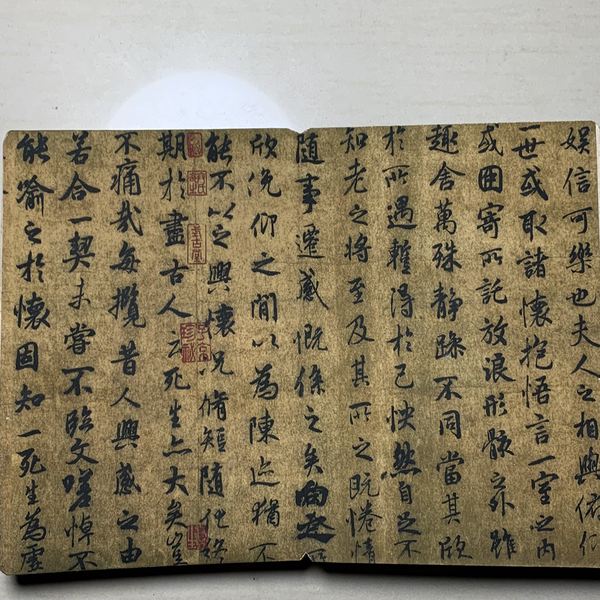 娱信可樂也夫人之相與俯仰
一世或取諸懷抱悟言一室之内
或因寄所託放浪形骸之外雖
趣舍萬殊静躁不同當其欣
於所遇蹔得於己怏然自足不
知老之將至及其所之既惓情
随事遷感慨係之矣向之所
欣俛仰之閒以為陳迹猶不
能不以之興懷况脩短随化終
期於盡古人云死生亦大矣豈
不痛哉每攬昔人興感之由
若合一契未嘗不臨文嗟悼不
能喻之於懷固知一死生為虚